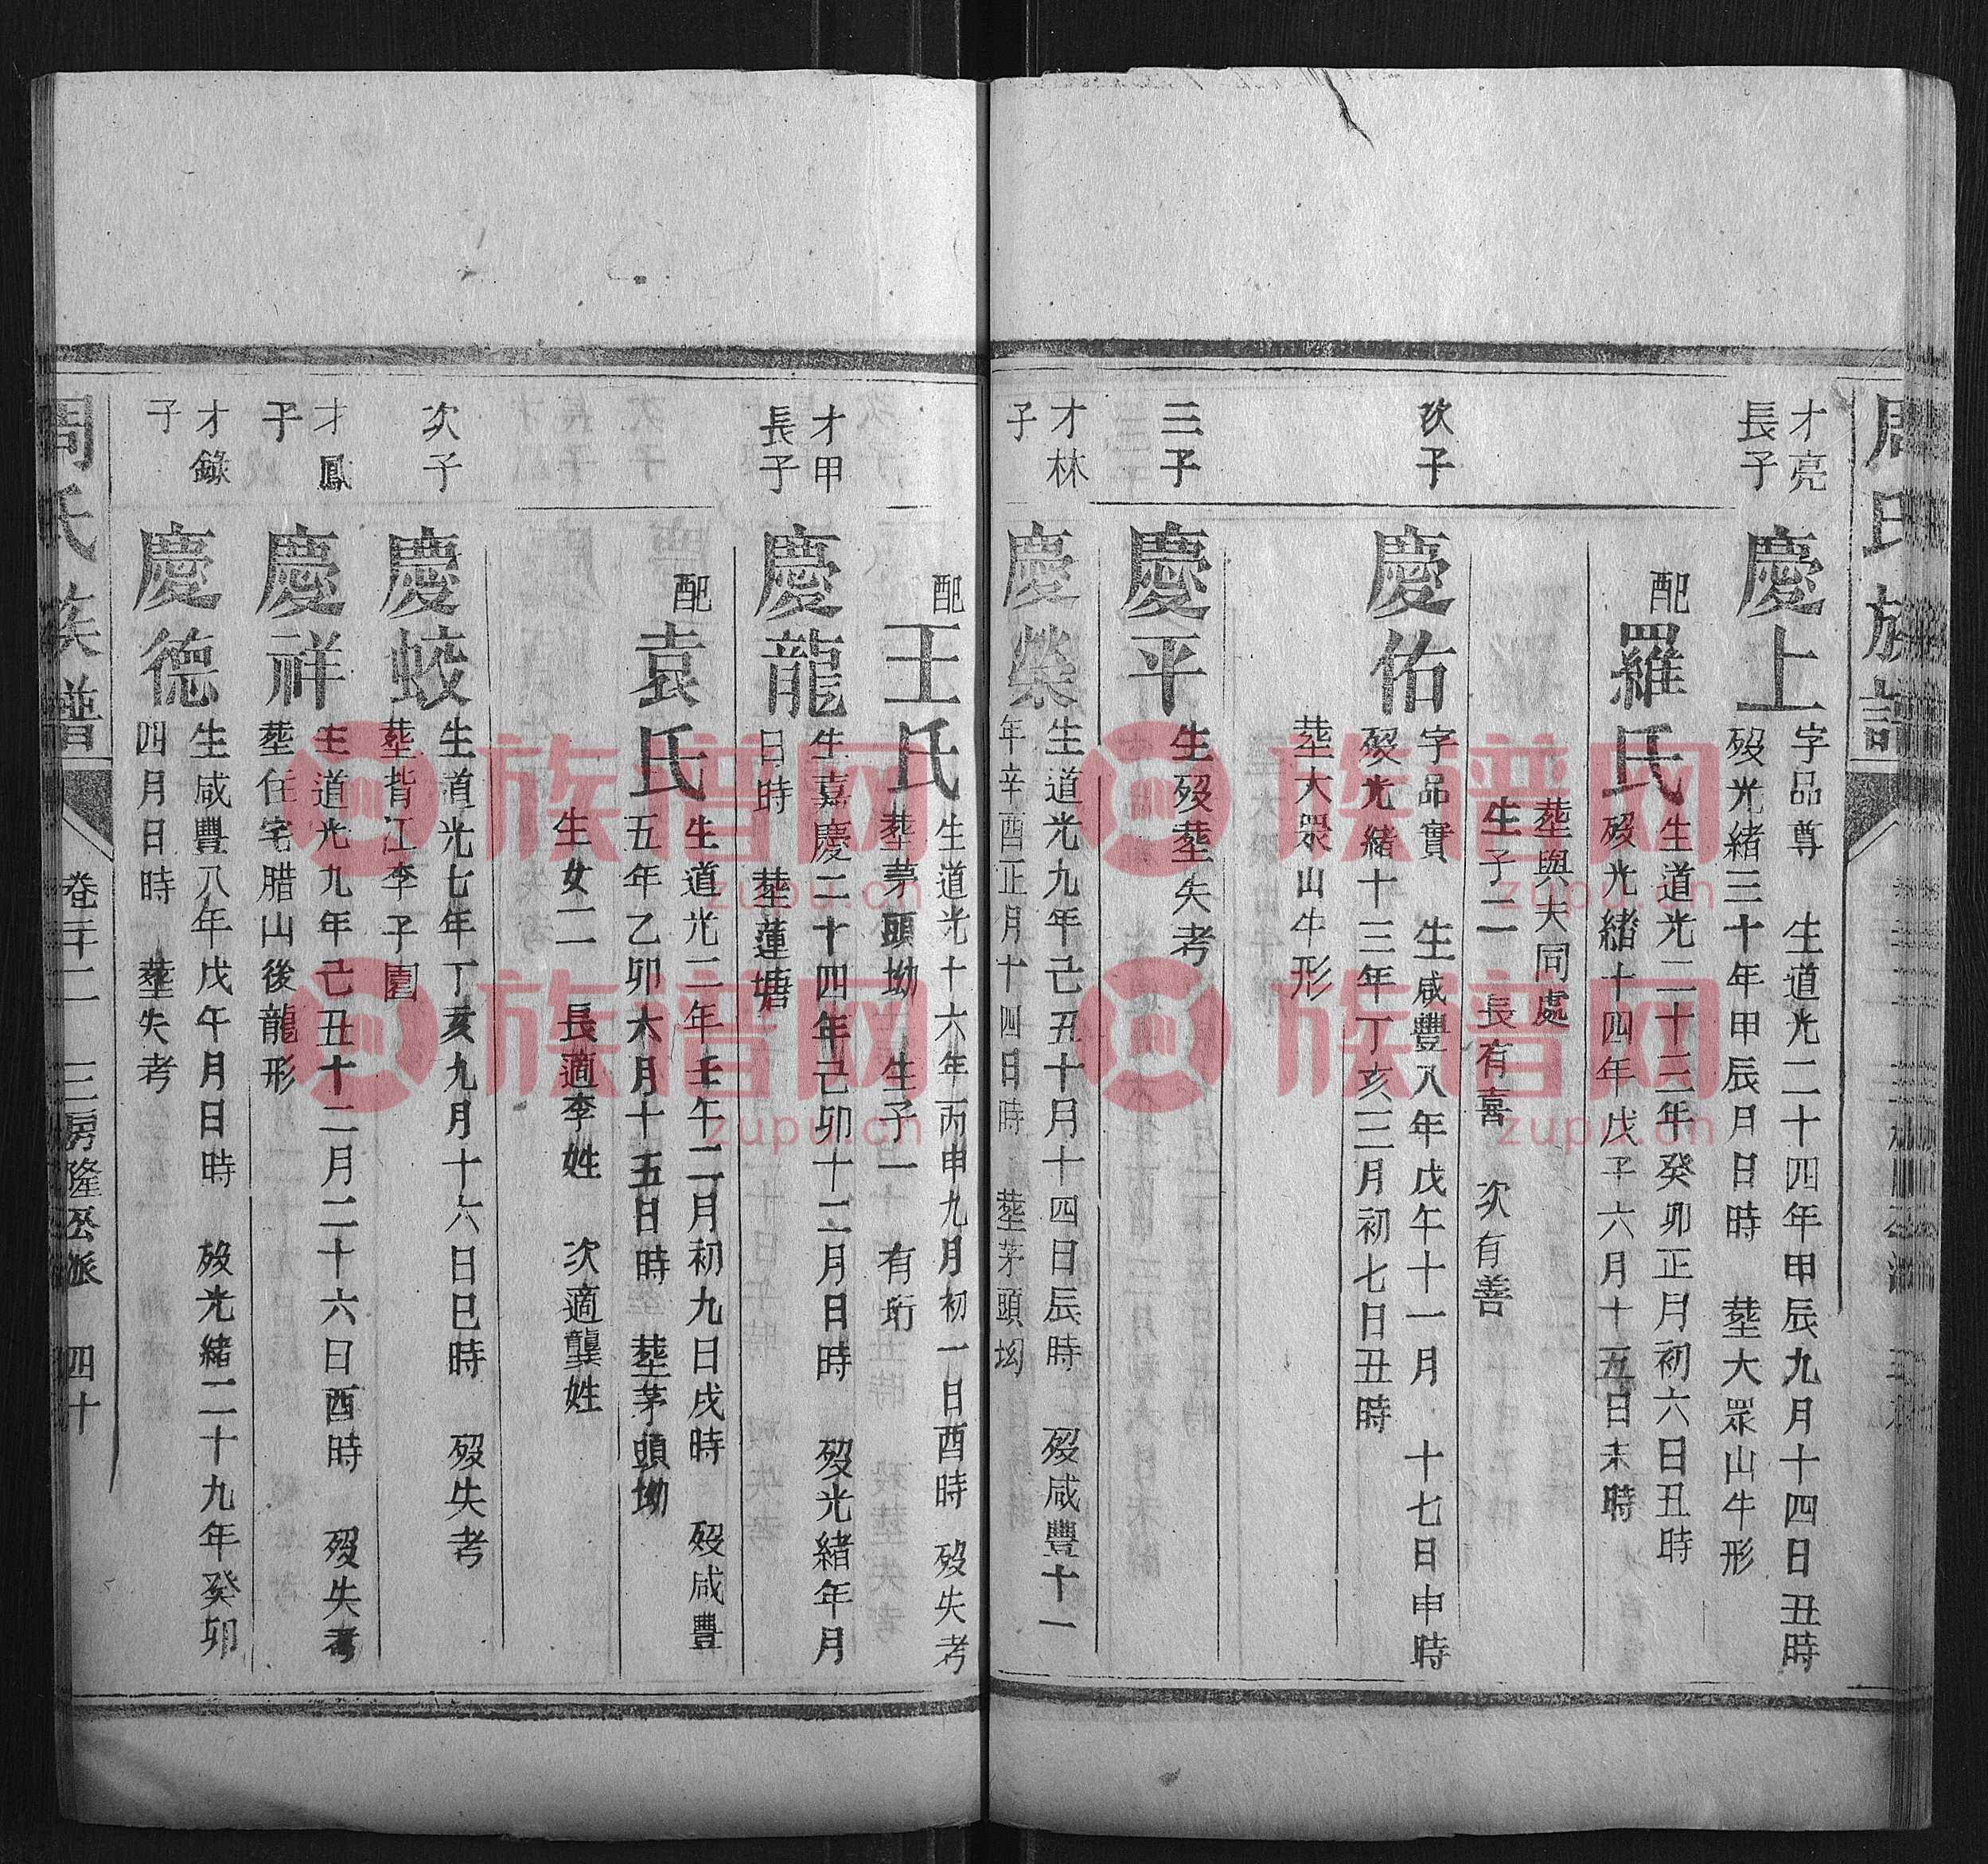 周氏族譜
才亮
長子
慶上
字品尊 生道光二十四年甲辰九月十四日丑時
歿光緒三十年甲辰月日時 塟大眾山牛形
配
羅氏
生道光二十三年癸卯正月初六日丑時
歿光緒十四年戊子六月十五日未時
塟與夫同處
生子二 長有喜 次有善
次子
慶佑
字品實 生咸豐八年戊午十一月 十七日申時
歿光緒十三年丁亥三月初七日丑時
塟大眾山牛形
三子
慶平
生歿塟失考
才林
子
慶榮
生道光九年己丑十月十四日辰時 歿咸豐十一
年辛酉正月十四日時 塟茅頭坳
配
王氏
生道光十六年丙申九月初一日酉時 歿失考
塟茅頭坳 生子一 有珩
才甲
長子
慶龍
生嘉慶二十四年己卯十二月日時 歿光緒年月
日時 塟蓮塘
配
袁氏
生道光二年壬午二月初九日戌時 歿咸豐
五年乙卯六月十五日時 塟茅頭坳
生女二 長適李姓 次適龔姓
次子
慶蛟
生道光七年丁亥九月十六日巳時 歿失考
塟背江李子園
才鳳
子
慶祥
生道光九年己丑十二月二十六日酉時 歿失考
塟住宅腊山後龍形
才錄
子
慶德
生咸豐八年戊午年月日時 歿光緒二十九年癸卯
四月日時 塟失考
周氏族譜
卷三十二 三房隆公派 四十
族谱网
zupu.cn
族谱网
zupu.cn
族谱网
zupu.cn
族谱网
zupu.cn